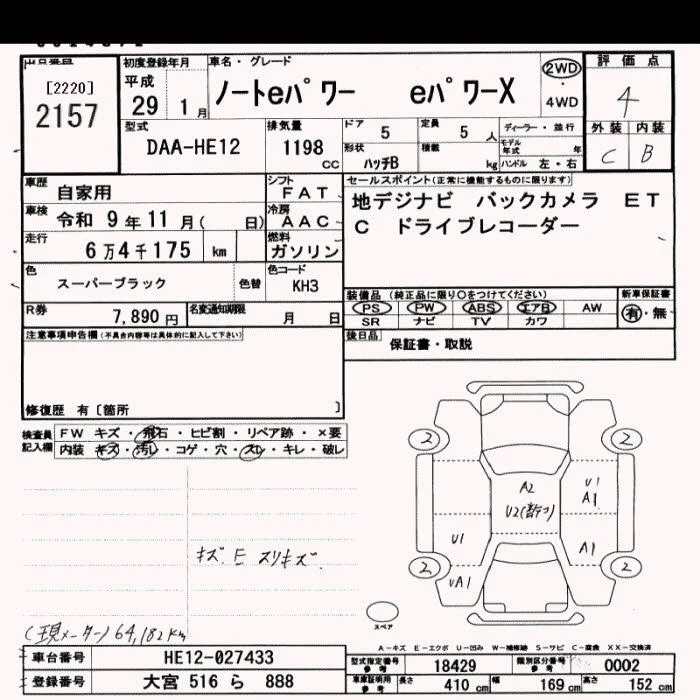 出品番号 初度登録年月 車名・グレード 評価点
[2220] 2157 平成 29 1月 ノートeパワー eパワーX 2WD・4WD 4
型式 DAA-HE12 排気量 1198 cc ドア 5 定員 5 人 ディーラー・並行
形状 ハッチB 積載 kg モデル年式 年 ハンドル 左・右
外装 C 内装 B
車歴 自家用 シフト FAT
車検 令和 9年11月( 日) 冷房 AAC
走行 6万4千175 km 燃料 ガソリン
色 スーパーブラック 色替 色コード KH3
R券 7,890円 名変通知期限 月 日
セールスポイント(正常に機能するものに限ります)
地デジナビ バックカメラ ET
C ドライブレコーダー
装備品(純正品に限り○をつけてください) 新車保証書
PS PW ABS エアB AW 有・無
SR ナビ TV カワ
後日品 保証書・取説
注意事項申告欄(不具合内容等は具体的に記入して下さい)
修復歴 有〔箇所 〕
検査員記入欄 FW キズ・飛石・ヒビ割・リペア跡・×要
内装 キズ・汚レ・コゲ・穴・スレ・キレ・破レ
キズ E スリキズ
(現メーター)64,182km
2 2
A2 U1
A1
U2
U1 A1
2 2
UA1
スペア
A-キズ E-エクボ U-凹み W-補修跡 S-サビ C-腐食 XX-交換済
車台番号 HE12-027433 型式指定番号 参考 18429 類別区分番号 参考 0002
登録番号 大宮 516 ら 888 車庫証明用 参考 長さ 410 cm 幅 169 cm 高さ 152 cm